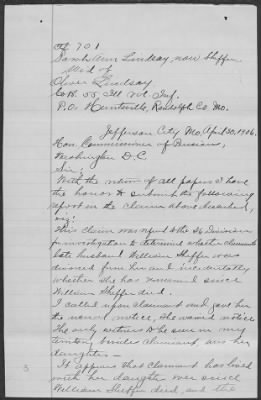 701
Sarah Ann Lindsay, now Sheffer
Wid of
Oliver Lindsay
Co. 55, Ill Vol. Inf.
P.O. Huntsville, Randolph Co. Mo.
Jefferson City Mo, April 30, 1906.
Hon. Commissioner of Pensions,
Washington D.C.
Sir:
With the return of all papers I have
the honor to submit the following
report on the claim above described,
viz:
This claim was referred to the Division
for investigation to determine whether claimants
late husband William Sheffer was
divorced from her and incidentally
whether she has remarried since
William Sheffer died.
I called upon claimant and gave her
the usual notice, she waived notice
The only witnesses to be seen in my
territory besides claimant are her
daughters —
It appears that claimant has lived
with her daughter ever since
William Sheffer died, and the